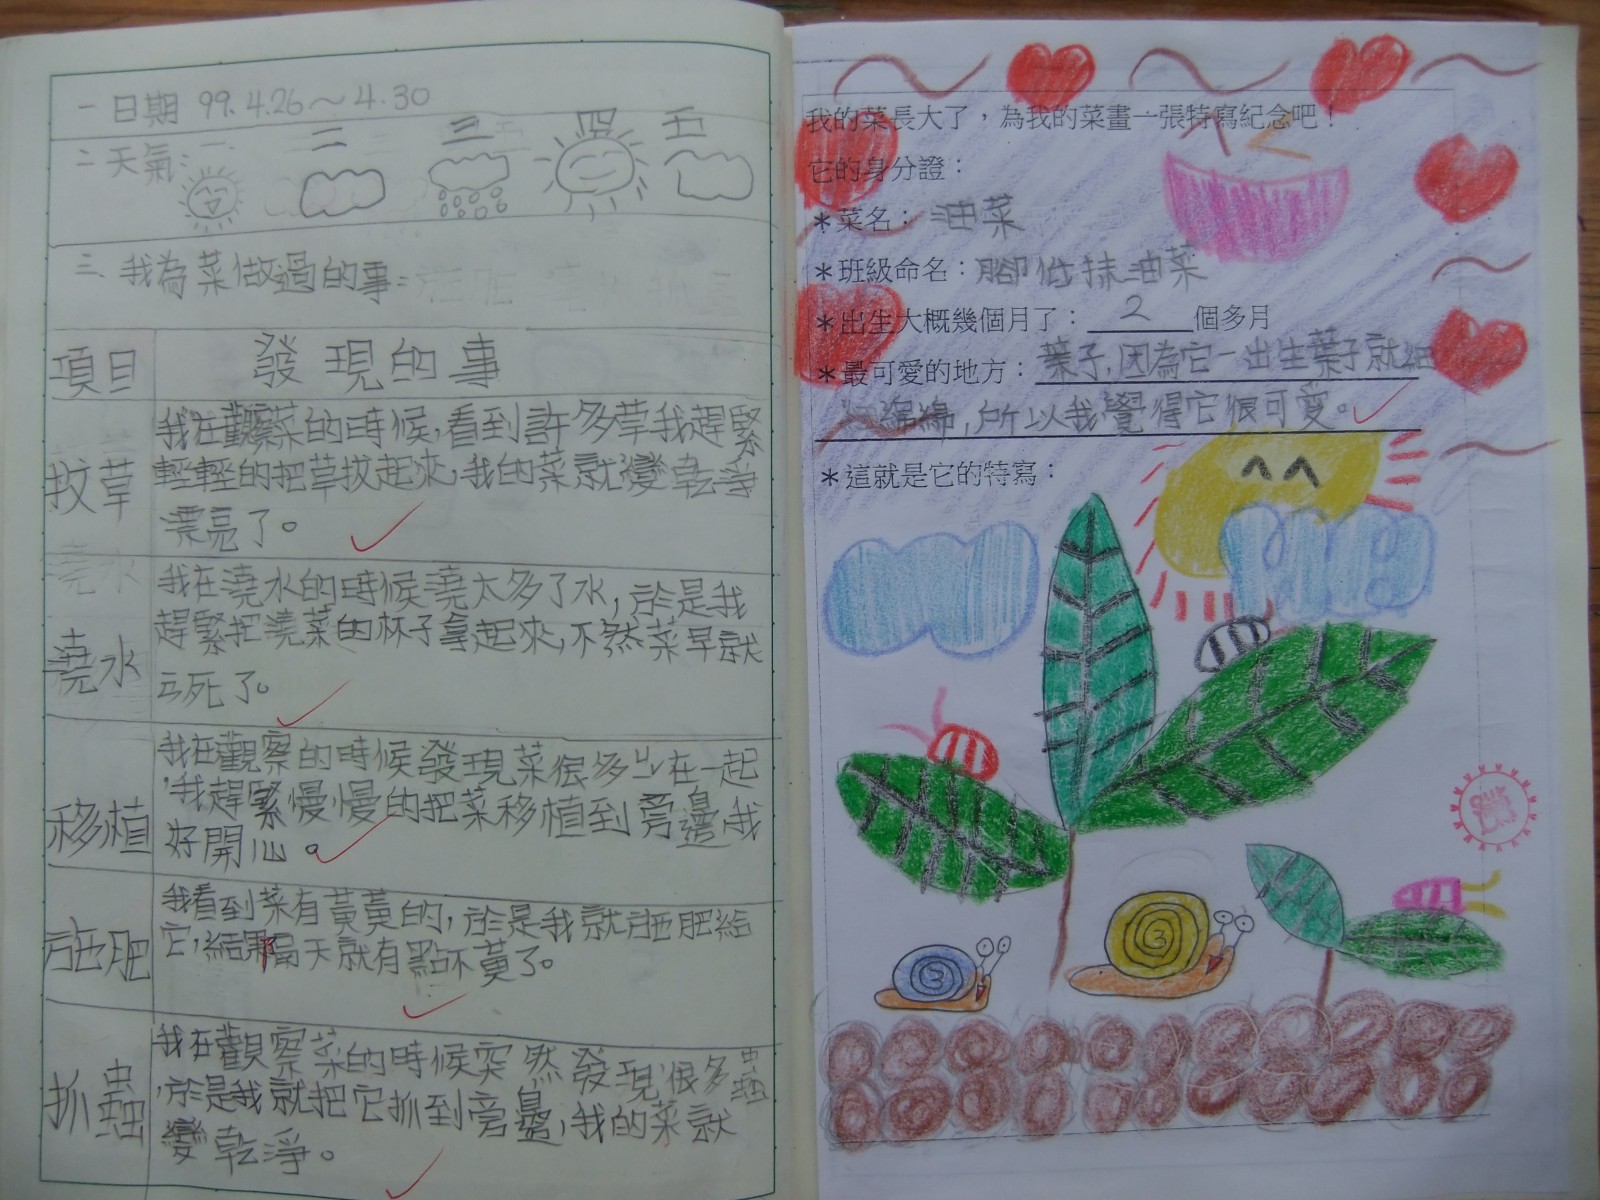 一 日期 99.4.26～4.30
二 天氣: 一 二 三 四 五
三 我為菜做過的事:
項目 發現的事
拔草
我在觀察菜的時候,看到許多草我趕緊
輕輕的把草拔起來,我的菜就變乾淨
漂亮了。
澆水
我在澆水的時候澆太多了水,於是我
趕緊把澆菜的杯子拿起來,不然菜早就
死了。
移植
我在觀察的時候發現菜很多ㄐㄧ在一起
,我趕緊慢慢的把菜移植到旁邊,我
好開心。
施肥
我看到菜有黃黃的,於是我就施肥給
它,結果隔天就有點不黃了。
抓蟲
我在觀察菜的時候突然發現很多蟲
,於是我就把它抓到旁邊,我的菜就
變乾淨。
我的菜長大了，為我的菜畫一張特寫紀念吧！
它的身分證：
＊菜名： 油菜
＊班級命名：腳低抹油菜
＊出生大概幾個月了： 2 個多月
＊最可愛的地方： 葉子,因為它一出生葉子就細
綿綿,所以我覺得它很可愛。
＊這就是它的特寫：
3
3